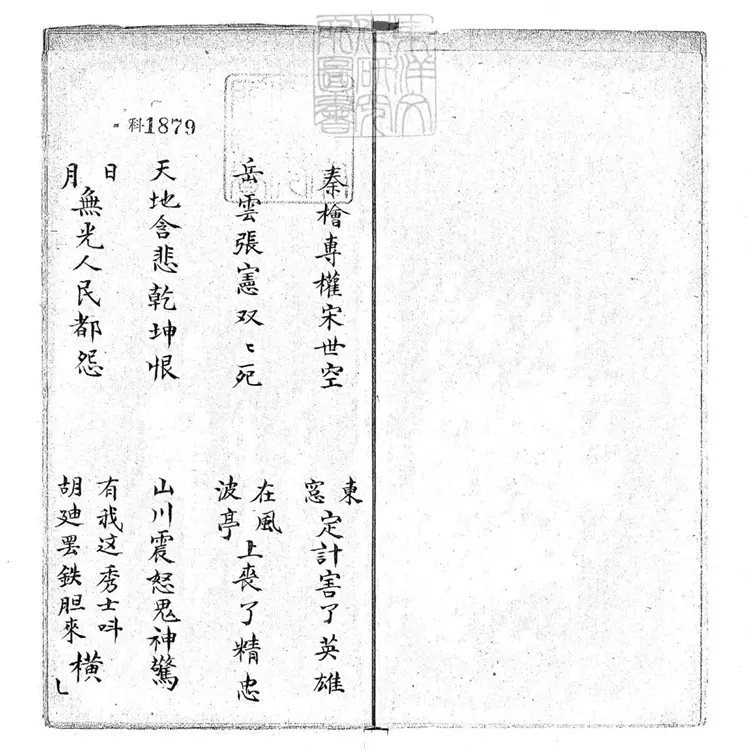 東洋文
化研究
所圖書
科1879
秦檜専權宋世空　東窓定計害了英雄
岳雲張憲双〻死　在風波亭上喪了精忠
天地含悲乾坤恨　山川震怒鬼神驚
日月無光人民都怨　有我这秀士呌胡廸罢鉄胆來橫